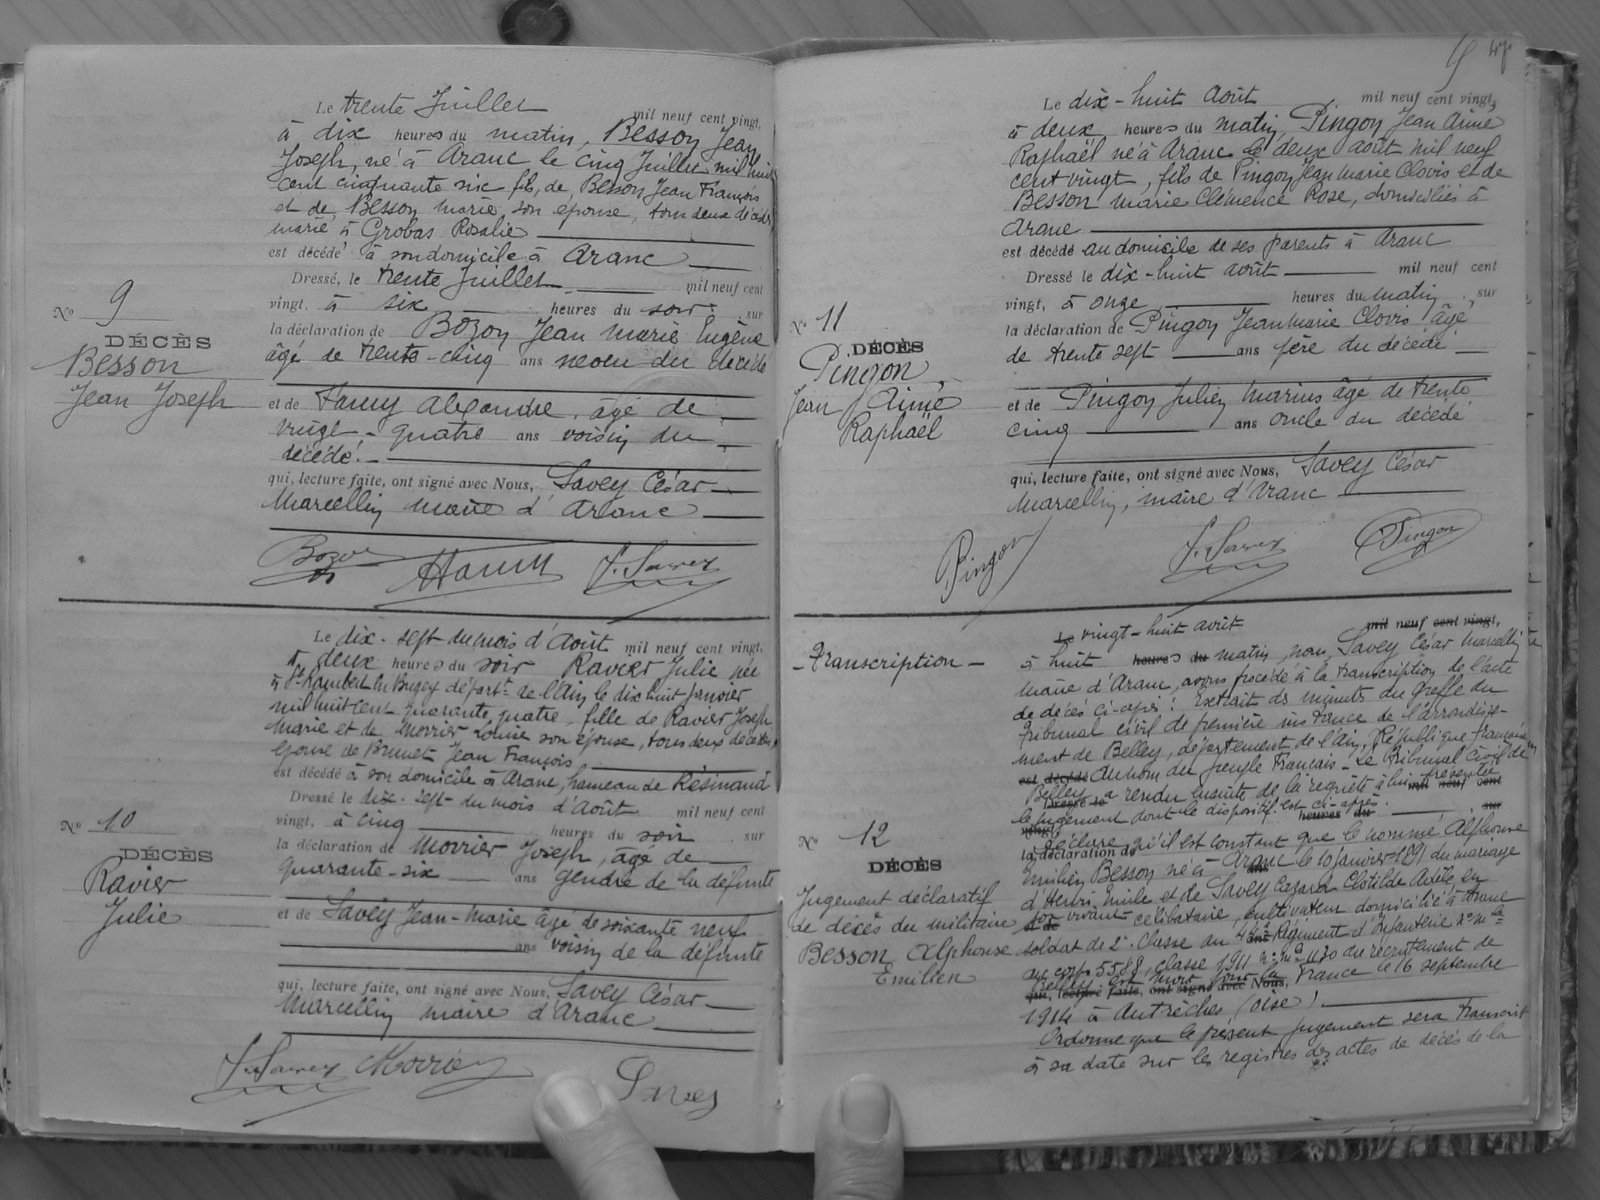 Le trente Juillet mil neuf cent vingt,
à dix heures du matin, Besson Jean
Joseph, né à Aranc le cinq Juillet mil huit
cent cinquante six fils de Besson Jean François
et de Besson Marie son épouse, tous deux décédés,
marié à Grobas Rosalie
est décédé à son domicile à Aranc
Dressé, le trente Juillet mil neuf cent
vingt, à six heures du soir, sur
la déclaration de Bozon Jean Marie Eugène
âgé de trente-cinq ans neveu du décédé
et de Famy Alexandre, âgé de
vingt-quatre ans voisin du
décédé.
qui, lecture faite, ont signé avec Nous, Savey César
Marcellin maire d'Aranc
No 9
DÉCÈS
Besson
Jean Joseph
Bozon
J. Savey
Le dix-sept du mois d'Août mil neuf cent vingt,
à deux heures du soir Ravier Julie née
à St Rambert en Bugey départt de l'Ain le dix huit Janvier
mil huit cent quarante quatre, fille de Ravier Joseph
Marie et de Morrier Louise son épouse, tous deux décédés,
épouse de Brunet Jean François
est décédé à son domicile à Aranc, hameau de Résinand
Dressé le dix-sept du mois d'Août mil neuf cent
vingt, à cinq heures du soir, sur
la déclaration de Morrier Joseph, âgé de
quarante-six ans gendre de la défunte
et de Savey Jean-Marie âgé de soixante neuf
ans voisin de la défunte
qui, lecture faite, ont signé avec Nous, Savey César
Marcellin maire d'Aranc
No 10
DÉCÈS
Ravier
Julie
J. Savey Morrier
Savey
47
Le dix-huit Août mil neuf cent vingt,
à deux heures du matin, Pingon Jean Aimé
Raphaël né à Aranc le deux août mil neuf
cent vingt, fils de Pingon Jean Marie Clovis et de
Besson Marie Clémence Rose, domiciliés à
Aranc
est décédé au domicile de ses parents à Aranc
Dressé le dix-huit août mil neuf cent
vingt, à onze heures du matin, sur
la déclaration de Pingon Jean Marie Clovis âgé
de trente sept ans père du décédé
et de Pingon Julien Marius âgé de trente
cinq ans oncle du décédé
qui, lecture faite, ont signé avec Nous, Savey César
Marcellin, maire d'Aranc
No 11
DÉCÈS
Pingon
Jean Aimé
Raphaël
Pingon J. Savey Pingon
-Transcription-
Le vingt-huit août mil neuf cent vingt,
à huit heures du matin, nous, Savey César Marcellin
maire d'Aranc, avons procédé à la transcription de l'acte
de décès ci-après: Extrait des minutes du Greffe du
Tribunal civil de première instance de l'arrondisse-
ment de Belley, département de l'Ain, République française
est décédé Au nom du peuple Français - Le Tribunal Civil de
Belley a rendu ensuite de la requête à lui présentée
le jugement dont le dispositif est ci-après.
Déclare qu'il est constant que le nommé Alphonse
Emilien Besson né à Aranc le 10 janvier 1891 du mariage
d'Henri Emile et de Savey Clotilde Adèle, en
son vivant célibataire, cultivateur domicilié à Aranc
soldat de 2e Classe au Régiment d'Infanterie
au corps 5588, classe 1911 1130 du recrutement de
Belley est mort pour la France le 16 septembre
1914 à Autrêches (Oise)
Ordonne que le présent jugement sera transcrit
à sa date sur les registres des actes de décès de la
No 12
DÉCÈS
Jugement déclaratif
de décès du militaire
Besson Alphonse
Emilien